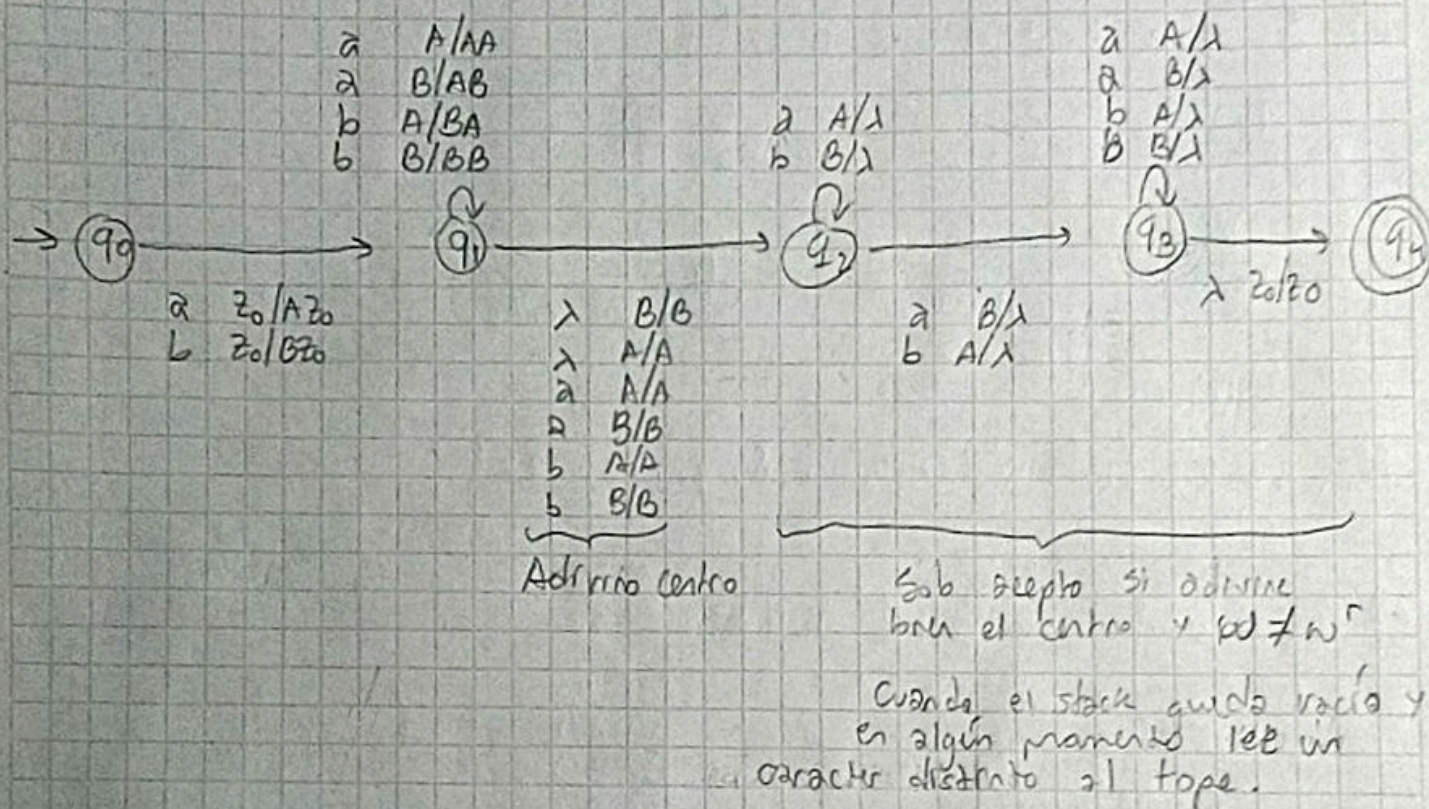 a A/AA
a B/AB
b A/BA
b B/BB
a A/λ
b B/λ
a A/λ
a B/λ
b A/λ
B B/λ
q0
q1
q2
q3
q4
a Z0/AZ0
b Z0/BZ0
λ B/B
λ A/A
a A/A
a B/B
b A/A
b B/B
a B/λ
b A/λ
λ Z0/Z0
Adivino centro
Solo acepto si adivine
bien el centro y w ≠ wʳ
Cuando el stack queda vacío y
en algún momento lee un
caracter distinto al tope.